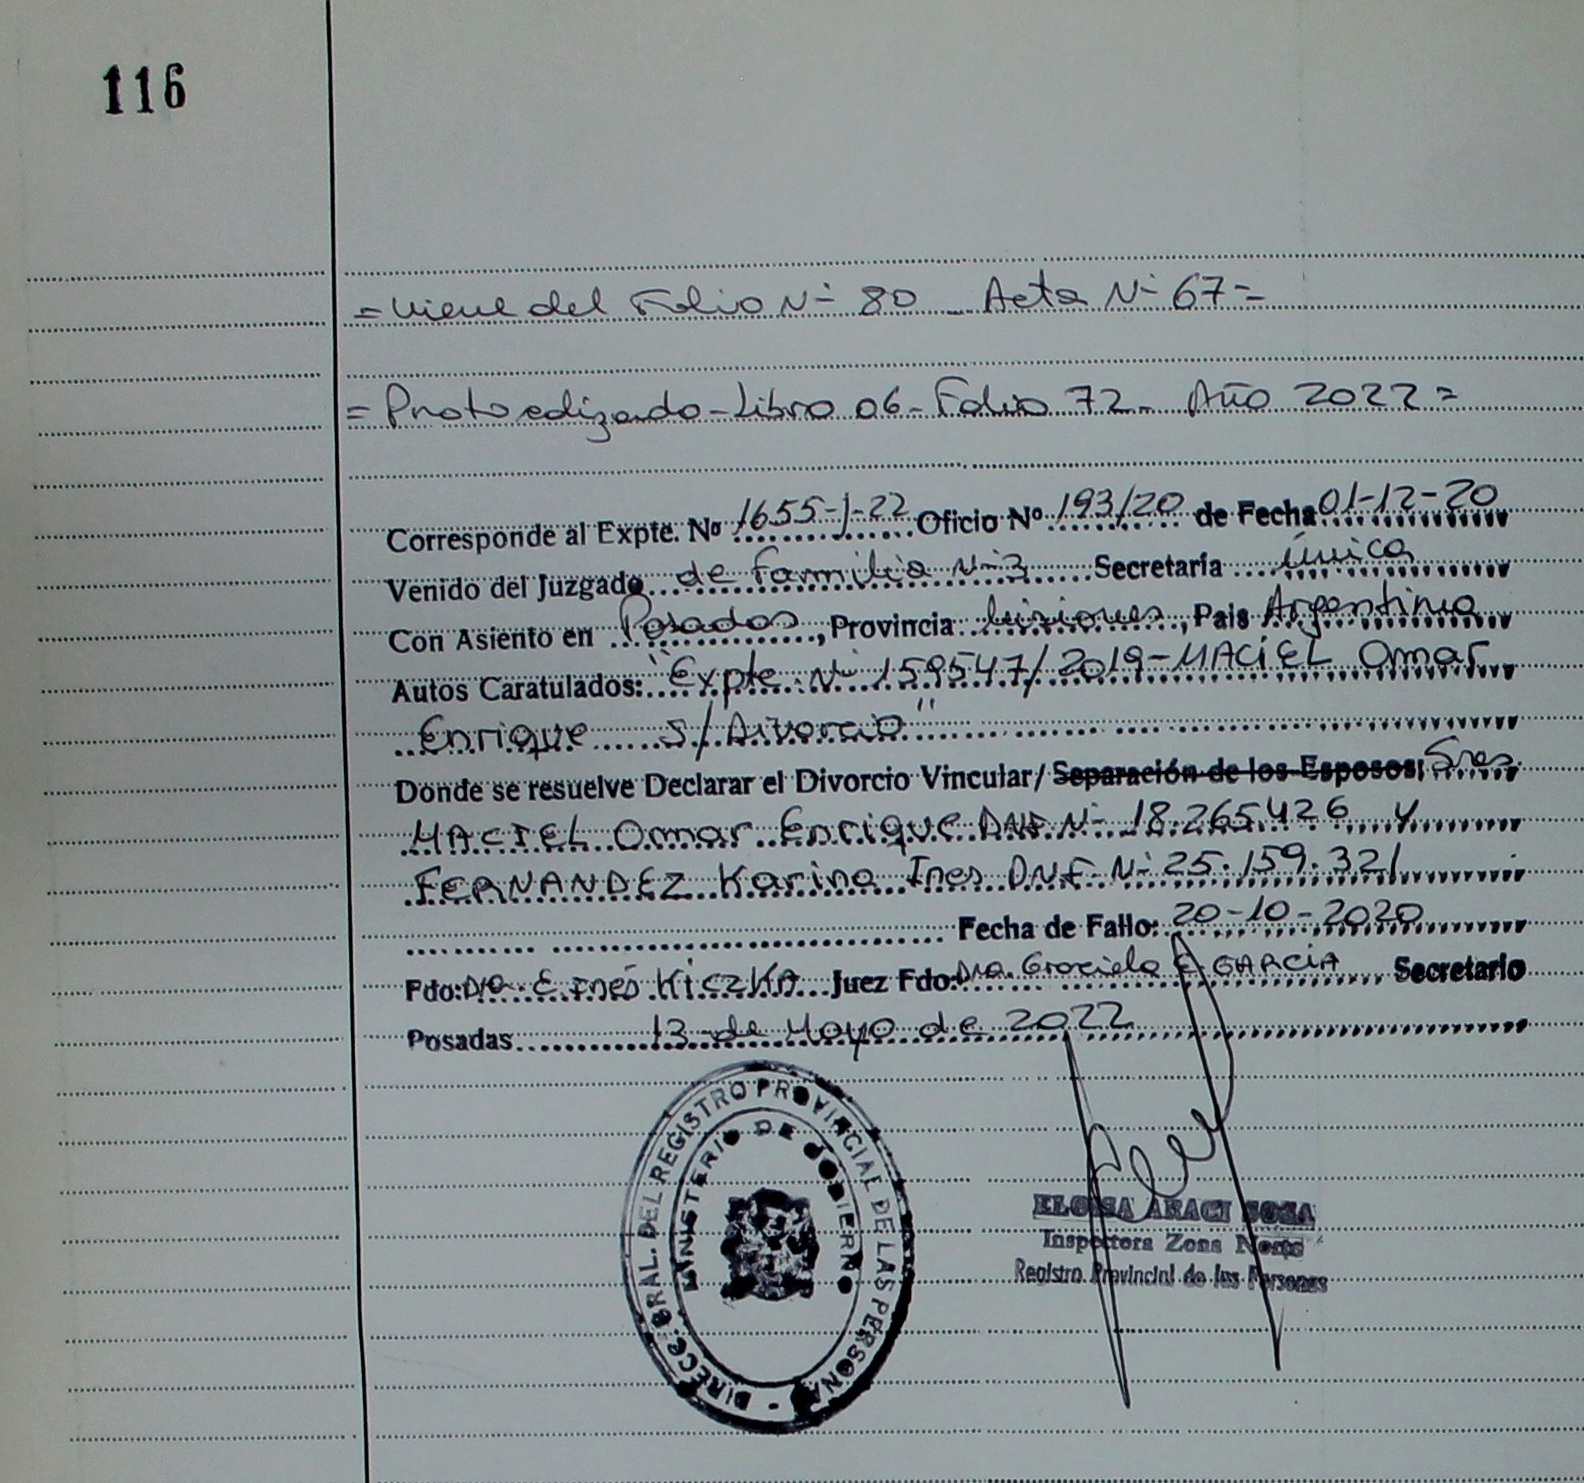 116
= Viene del Folio Nº 80 _ Acta Nº 67 =
= Protocolizado - Libro 06 - Folio 72 - Año 2022 =
Corresponde al Expte. Nº 1655-J-22 Oficio Nº 193/20 de Fecha 01-12-20
Venido del Juzgado de Familia Nº 3 Secretaría Única
Con Asiento en Posadas, Provincia Misiones, País Argentina
Autos Caratulados: "Expte. Nº 159547/2019 - MACIEL Omar
Enrique S/ Divorcio"
Donde se resuelve Declarar el Divorcio Vincular/ Separación de los Esposos: Sres
MACIEL Omar Enrique DNI Nº 18.265.426 y
FERNANDEZ Karina Ines DNI Nº 25.159.321
Fecha de Fallo: 20-10-2020
Fdo: Dra. E. Inés KICZKA Juez Fdo: Dra. Graciela E GARCIA Secretario
Posadas 13 de Mayo de 2022
DIRECC. GRAL. DEL REGISTRO PROVINCIAL DE LAS PERSONAS
MINISTERIO DE GOBIERNO
ELOISA ARACI SOSA
Inspectora Zona Norte
Registro Provincial de las Personas